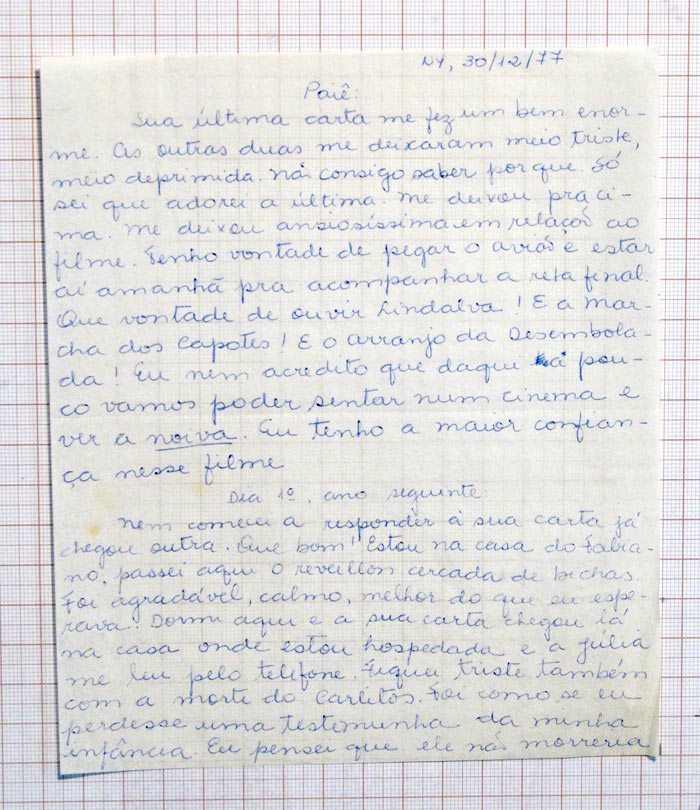 NY, 30/12/77
Paiê:
Sua última carta me fez um bem enor-
me. As outras duas me deixaram meio triste,
meio deprimida. Não consigo saber por que. Só
sei que adorei a última. Me deixou pra ci-
ma. Me deixou ansiosíssima em relação ao
filme. Tenho vontade de pegar o avião e estar
aí amanhã pra acompanhar a reta final.
Que vontade de ouvir Lindalva! E a Mar-
cha dos Capotes! E o arranjo da Desembola-
da! Eu nem acredito que daqui a pou-
co vamos poder sentar num cinema e
ver a noiva. Eu tenho a maior confian-
ça nesse filme
Dia 1º, ano seguinte:
Nem comecei a responder à sua carta já
chegou outra. Que bom! Estou na casa do Fabia-
no, passei aqui o reveillon cercada de bichas.
Foi agradável, calmo, melhor do que eu espe-
rava. Dormi aqui e a sua carta chegou lá
na casa onde estou hospedada e a Júlia
me leu pelo telefone. Fiquei triste também
com a morte do Carlitos. Foi como se eu
perdesse uma testemunha da minha
infância. Eu pensei que ele não morreria